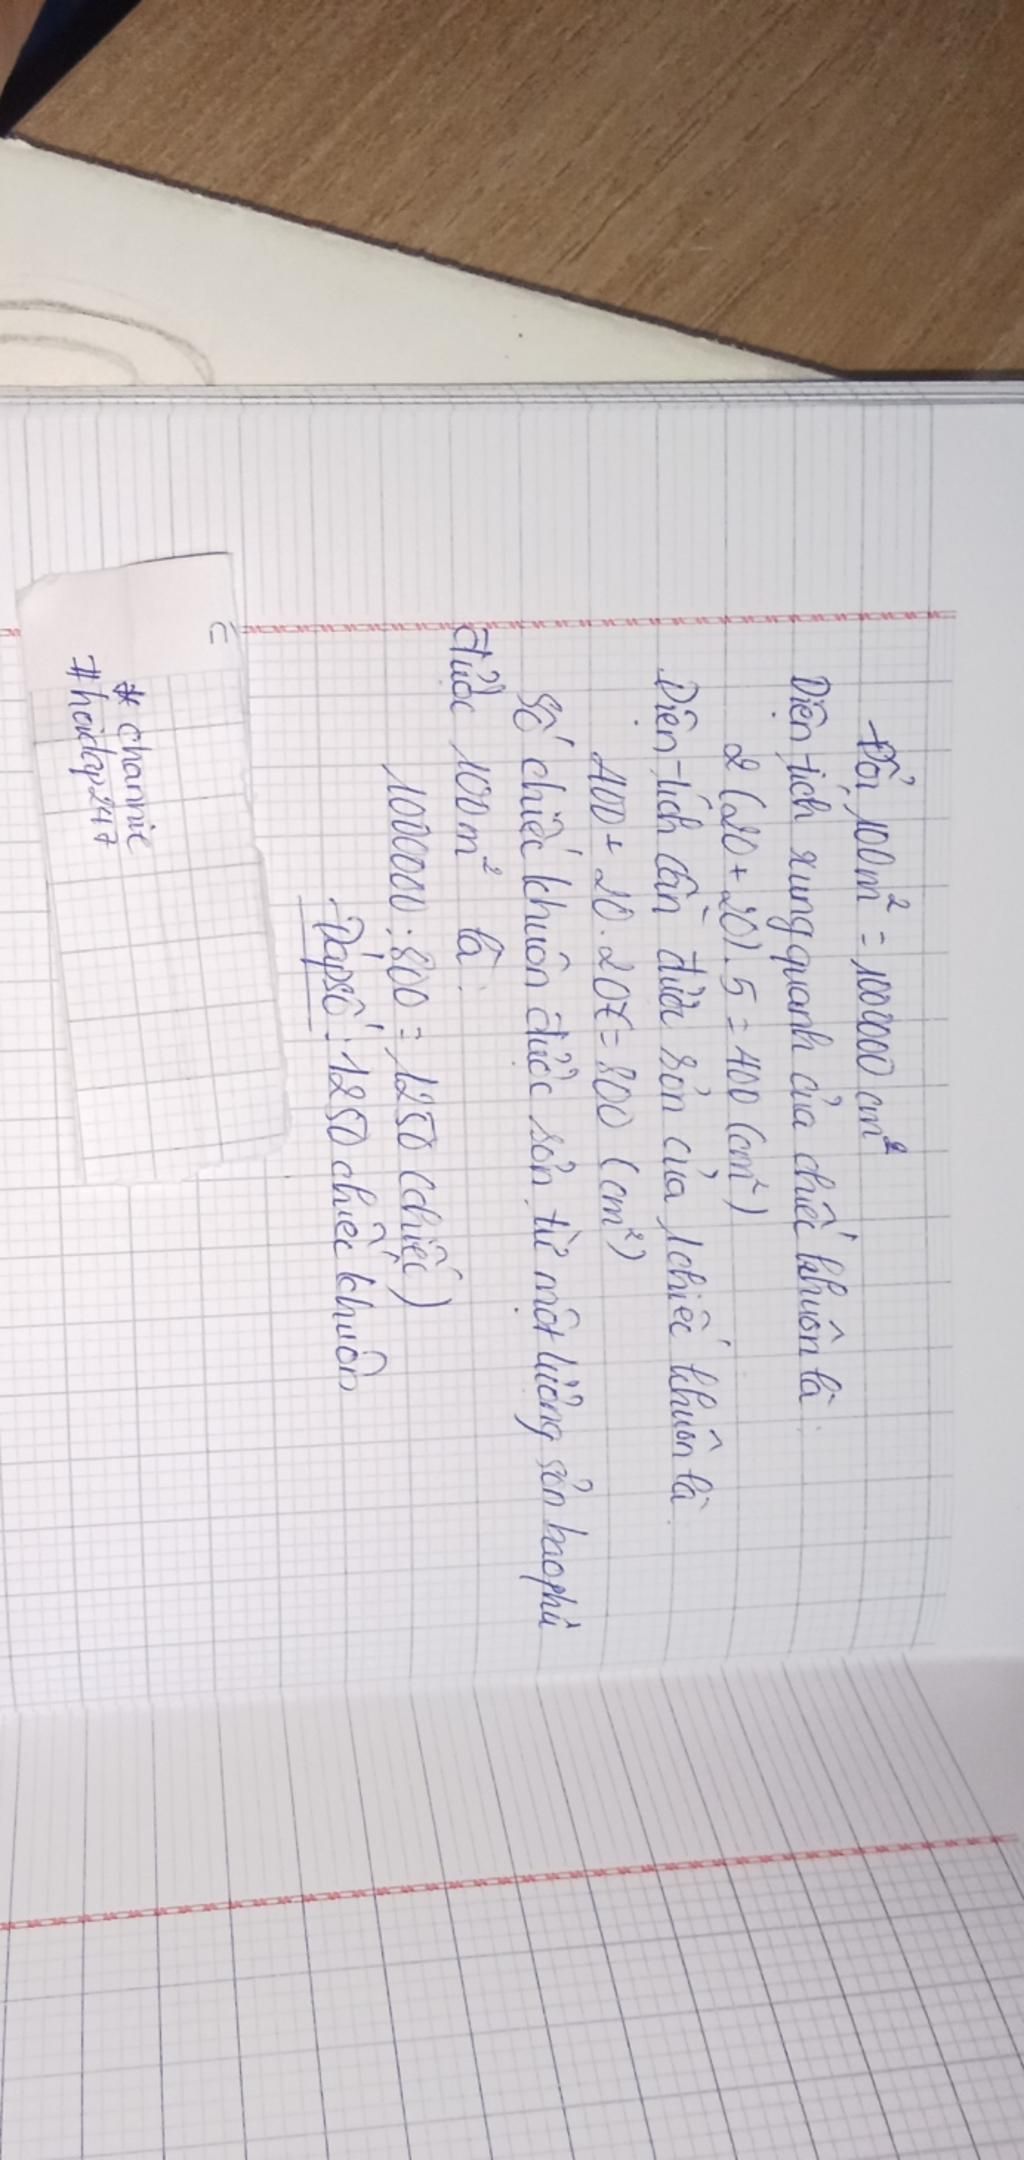 Đổi, 100m² = 1000000 cm²
Diện tích xung quanh của chiếc khuôn là:
2 (20 + 20). 5 = 400 (cm²)
Diện tích cần được sơn của 1 chiếc khuôn là
400 + 20. 20 = 800 (cm²)
Số chiếc khuôn được sơn từ một lượng sơn bao phủ
được 100m² là:
1000000 : 800 = 1250 (chiếc)
Đáp số: 1250 chiếc khuôn
* channie
#hoidap247